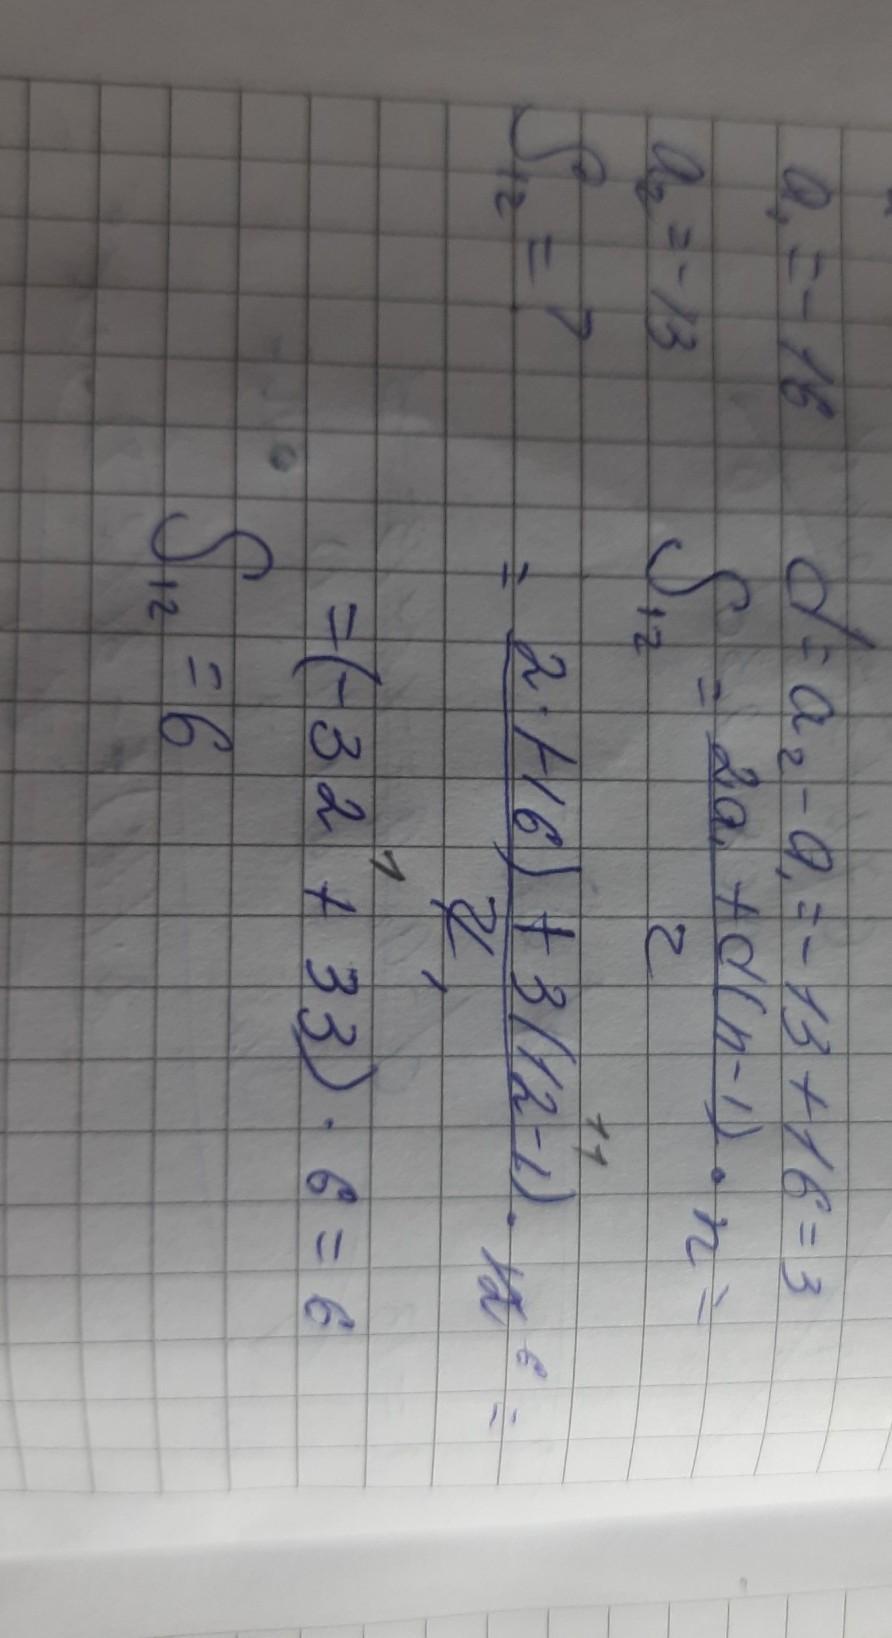 a₁ = -16
a₂ = -13
S₁₂ = ?
d = a₂ - a₁ = -13 + 16 = 3
S₁₂ = (2a₁ + d(n-1))/2 · n =
= (2·(-16) + 3(12-1)¹¹)/2₁ · 12⁶ =
= (-32 + 33)¹ · 6 = 6
S₁₂ = 6